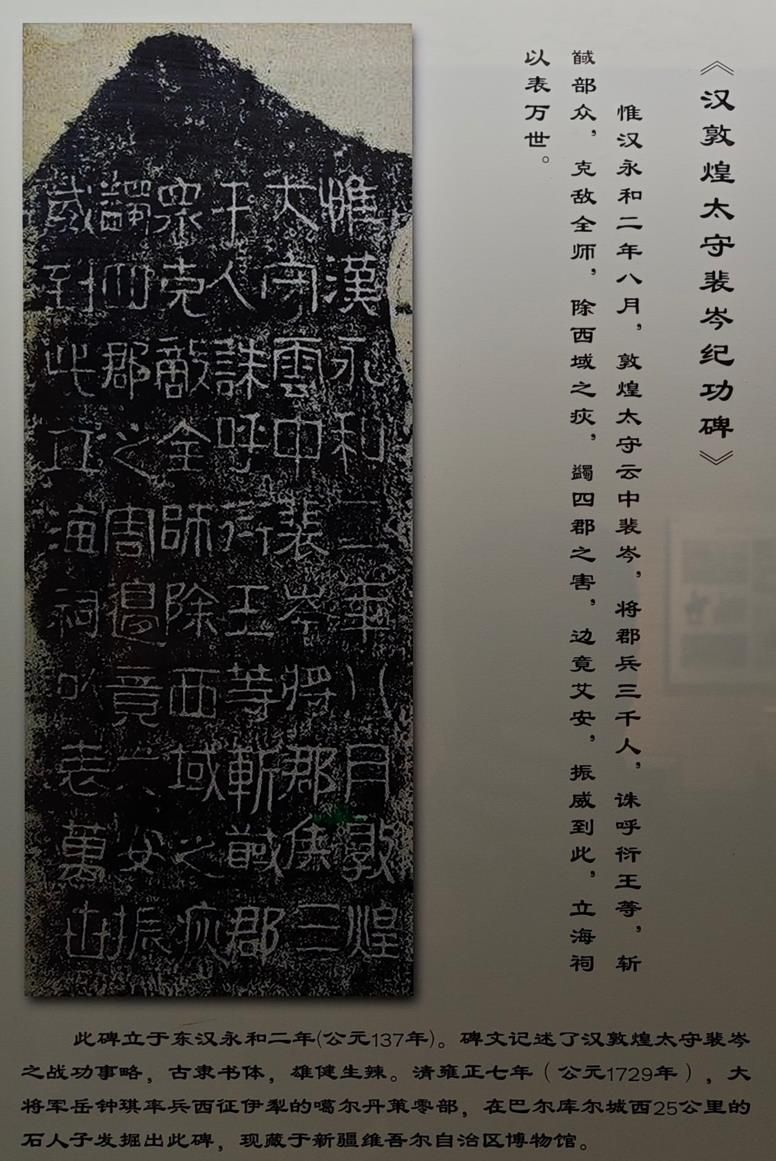 《汉敦煌太守裴岑纪功碑》
惟汉永和二年八月，敦煌太守云中裴岑，将郡兵三千人，诛呼衍王等，斩
馘部众，克敌全师，除西域之疢，蠲四郡之害，边竟艾安，振威到此，立海祠
以表万世。
惟漢永和二年八月敦煌
太守雲中裴岑將郡兵三
千人誅呼衍王等斬馘部
衆克敵全師除西域之疢
蠲四郡之害邊竟艾安振
威到此立海祠以表萬世
此碑立于东汉永和二年(公元137年)。碑文记述了汉敦煌太守裴岑
之战功事略，古隶书体，雄健生辣。清雍正七年（公元1729年），大
将军岳钟琪率兵西征伊犁的噶尔丹策零部，在巴尔库尔城西25公里的
石人子发掘出此碑，现藏于新疆维吾尔自治区博物馆。